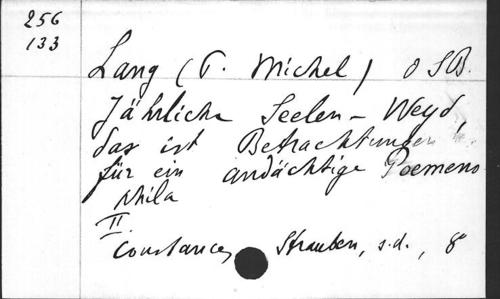 256
133
Lang (P. Michel) O S B.
Jährliche Seelen-Weyd,
das ist Betrachtungen
für ein andächtige Poemeno
phila
II.
Constance, Strauben, s.d., 8°